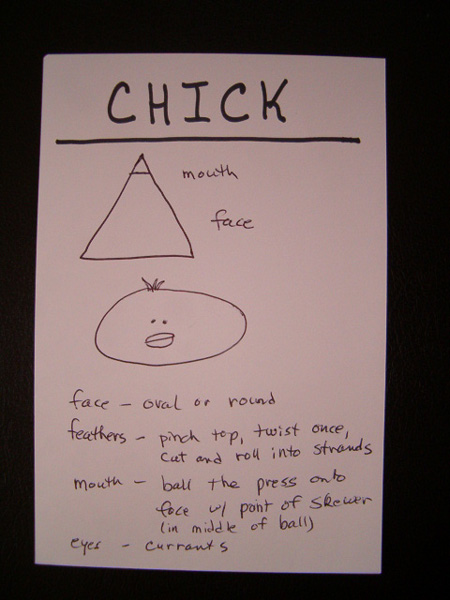 CHICK
mouth
face
face - oval or round
feathers - pinch top, twist once,
cut and roll into strands
mouth - ball the press onto
face w/ point of skewer
(in middle of ball)
eyes - currants